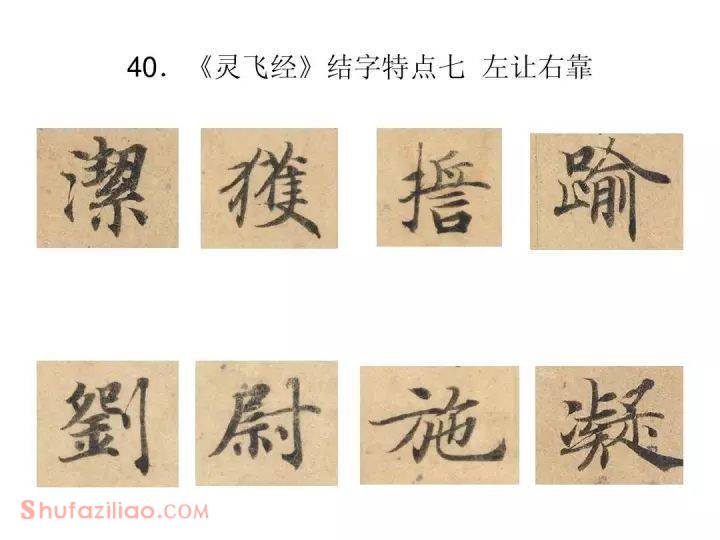 40. 《灵飞经》结字特点七 左让右靠
潔 獲 誓 踰
劉 尉 施 凝
Shufaziliao.com